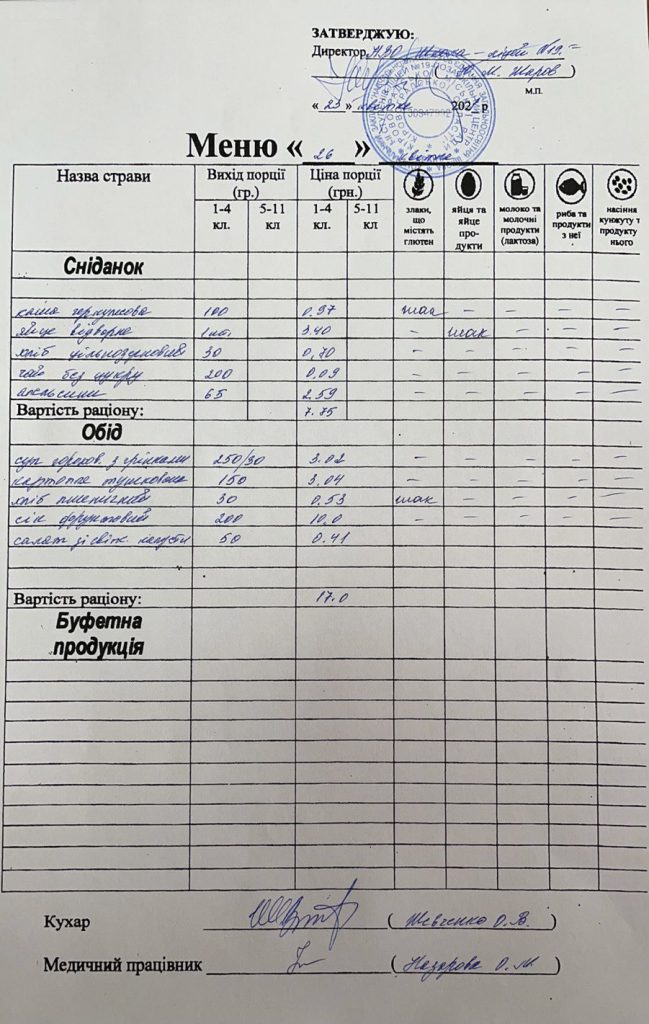 ЗАТВЕРДЖУЮ:
Директор НВО Школа - ліцей №19
( М. Жаров )
м.п.
« 23 » квітня 202 р
Меню « 26 » квітня
Назва страви Вихід порції (гр.) Ціна порції (грн.) злаки, що містять глютен яйця та яйце продукти молоко та молочні продукти (лактоза) риба та продукти з неї насіння кунжуту т продукту нього
1-4 кл. 5-11 кл 1-4 кл. 5-11 кл
Сніданок
каша 100 0,97 так – – – –
яйце відворне 1шт. 3.40 – так – – –
хліб цільнозерновий 30 0,70 – – – – –
чай без цукру 200 0,09 – – – – –
апельсини 65 2.59 – – – – –
Вартість раціону: 7.75
Обід
суп горохов. з грінками 250/30 3.02 – – – – –
картопля тушкована 150 3,04 – – – – –
хліб пшеничний 30 0,53 так – – – –
сік фруктовий 200 10,0 – – – – –
салат зі свіж. капусти 50 0.41
Вартість раціону: 17.0
Буфетна продукція
Кухар ( Шевченко О.В. )
Медичний працівник ( Назарова О.М )